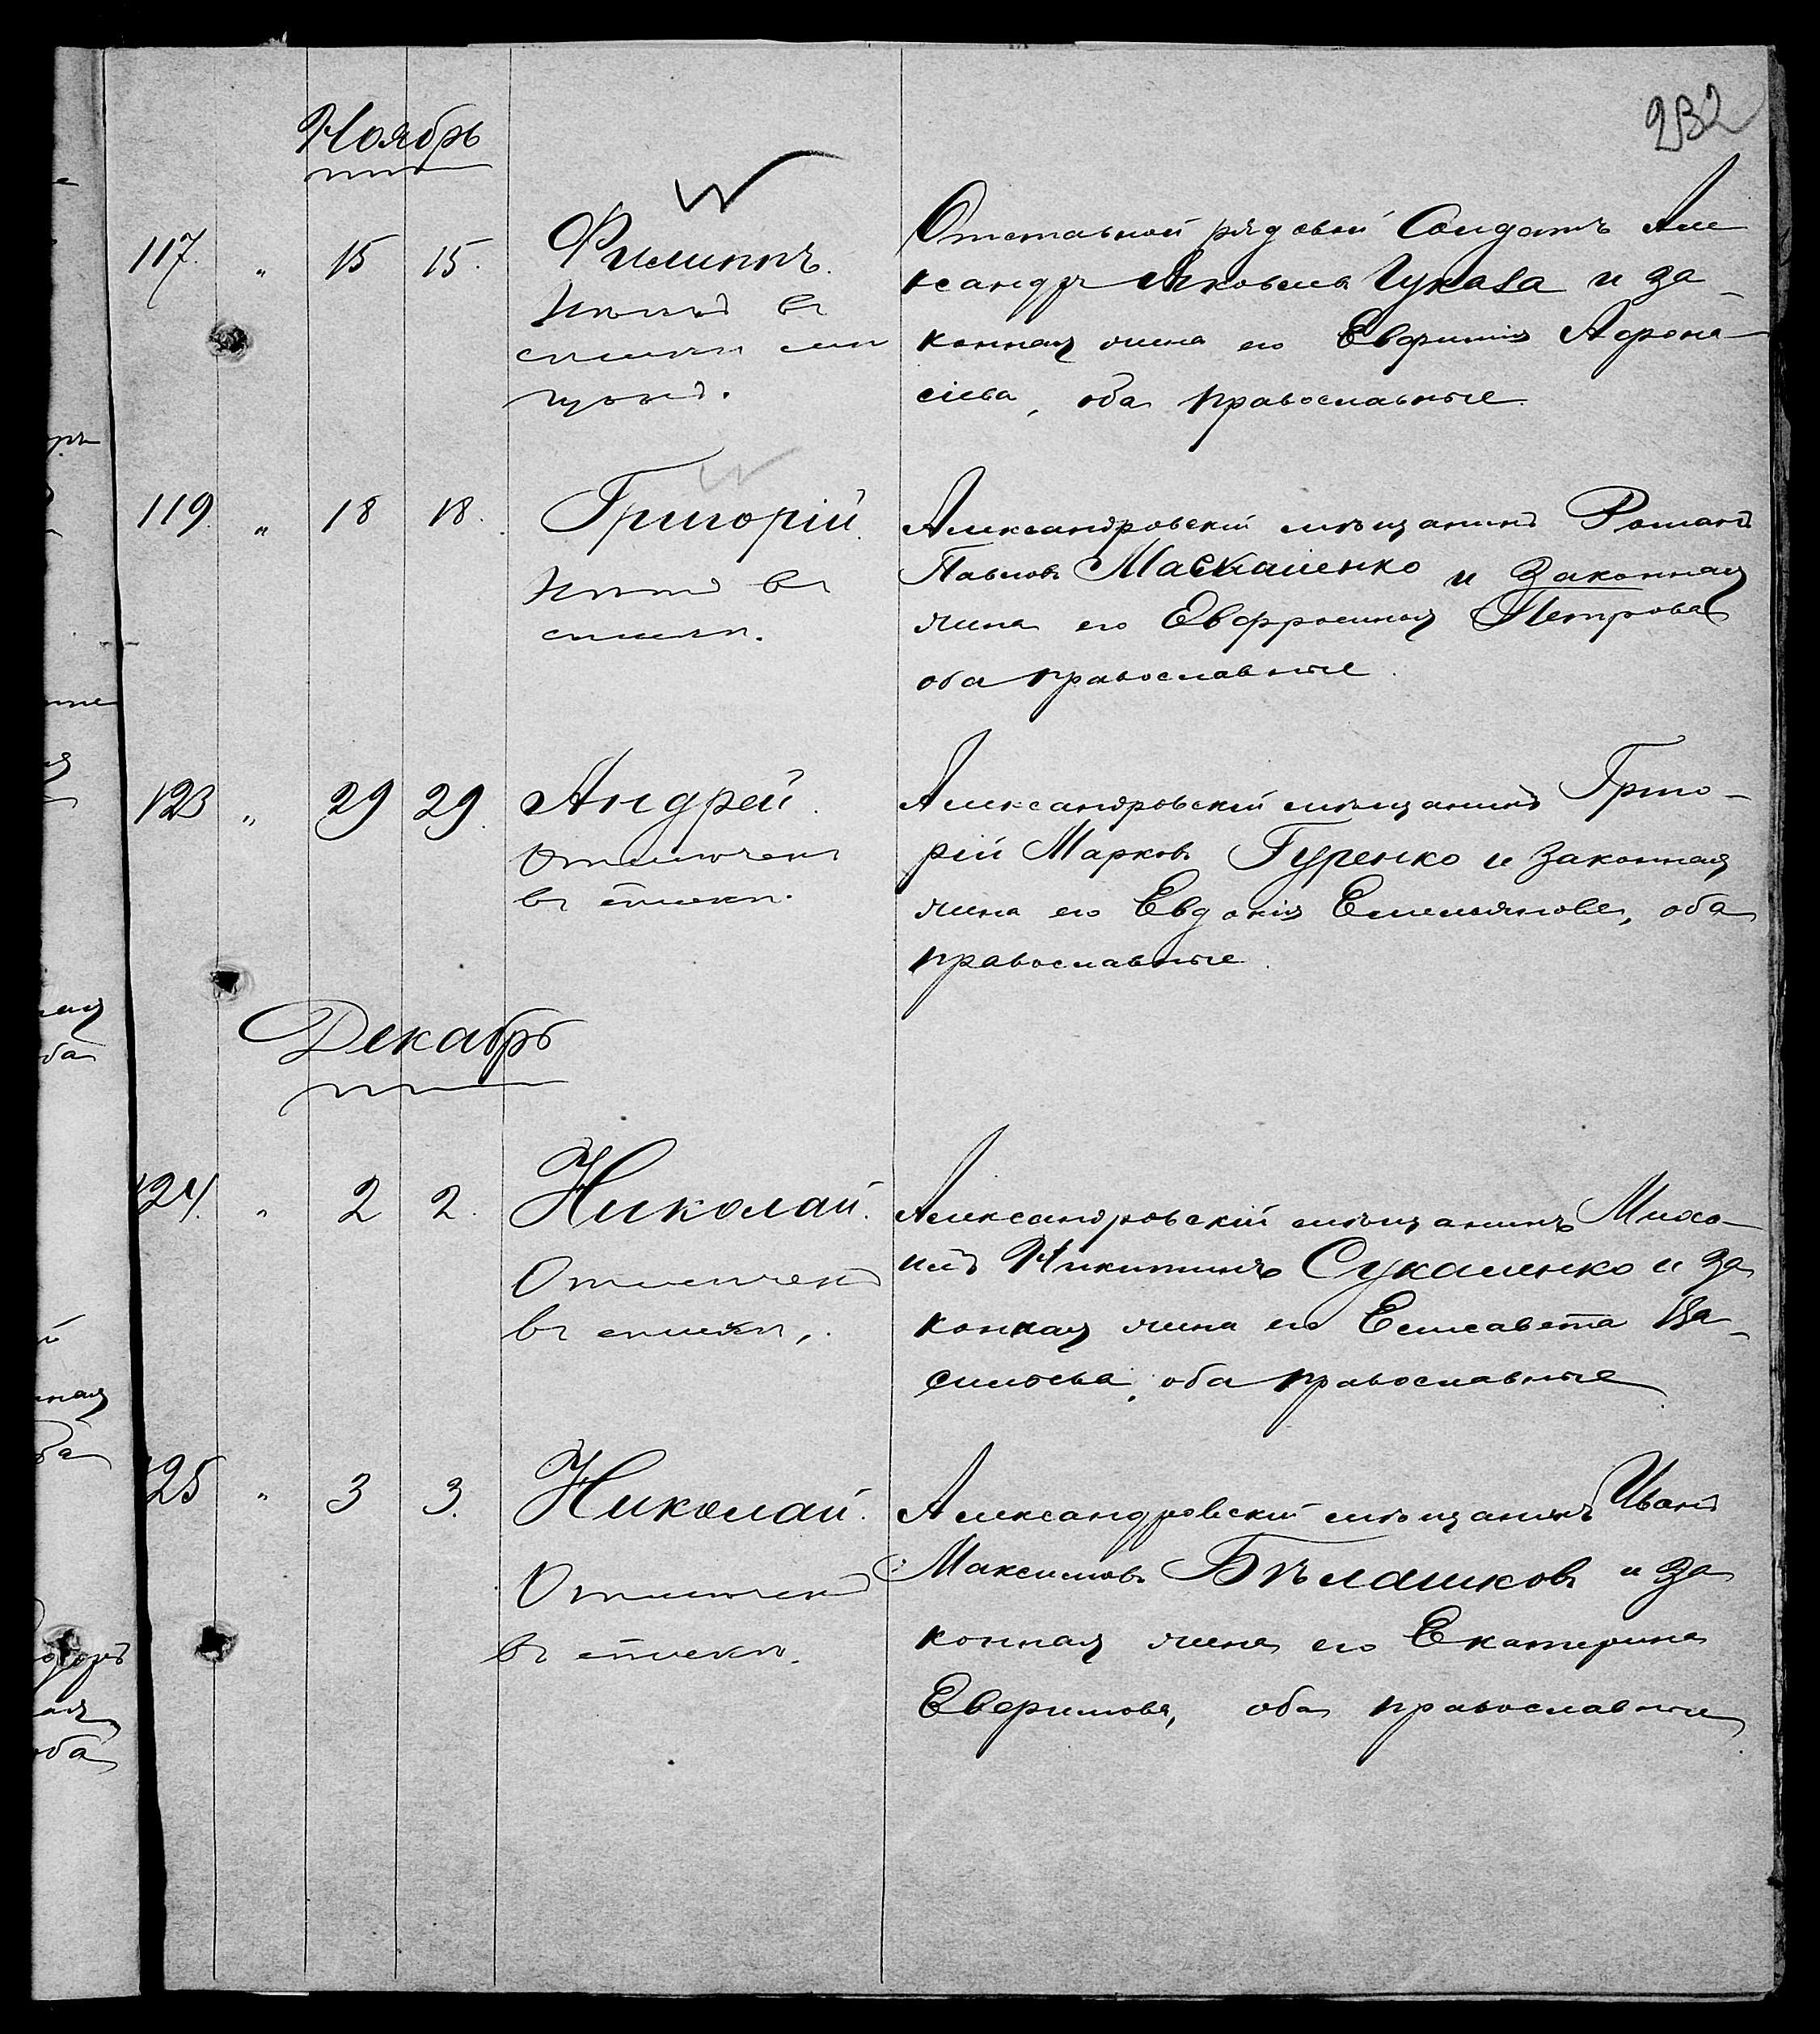 232
Ноябрь
117. " 15 15. Филиппъ.
Отставной рядовой Солдатъ Але
ксандръ Яковлевъ Чукава и за-
конная жена его Евфимія Афона-
сіева, оба православные.
119. " 18 18. Григорій.
въ
Александровскій мѣщанинъ Романъ
Павловъ Маскаленко и законная
жена его Евфросинія Петрова
оба православные.
123 " 29 29. Андрей.
въ
Александровскій мѣщанинъ Григо-
рій Марковъ Гуренко и законная
жена его Евдокія Емельянова, оба
православные.
Декабрь
124. " 2 2. Николай.
Отмеченъ
въ списки.
Александровскій мѣщанинъ Миха-
илъ Никитинъ Сукаленко и за
конная жена его Елисавета Ва-
сильева, оба православные
125 " 3 3. Николай.
Отмеченъ
въ списки.
Александровскій мѣщанинъ Иванъ
Максимовъ Бѣлашковъ и за
конная жена его Екатерина
Ефимова, оба православные